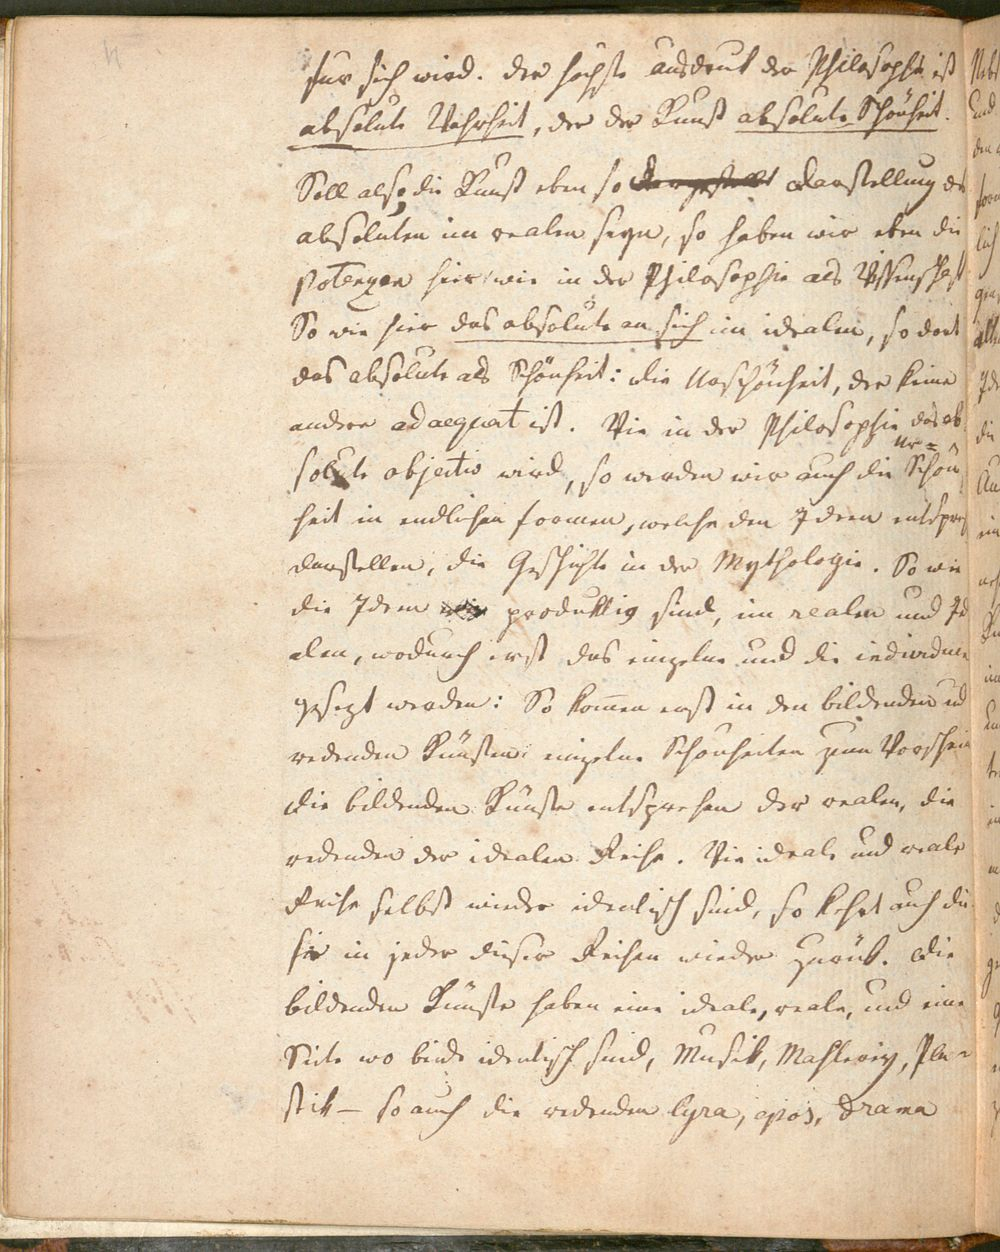 für sich wird. der höchste Ausdruk der Philosophie ist
absolute Wahrheit, der der Kunst absolute Schönheit.
Soll also die Kunst eben so dargestellt darstellung des
absoluten im realen seyn, so haben wir eben die
potenzen hier wie in der Philosophie als Wissenschaft
So wie hier das absolute an sich im idealen, so dort
das absolute als Schönheit: die Urschönheit, der keine
andere adaequat ist. Wie in der Philosophie das ab
solute objectiv wird, so werden wir auch die Ur=Schön
heit in endlichen formen, welche den Ideen entsprech
darstellen, die Geschichte in der Mythologie. So wie
die Ideen produktiv sind, im realen und Id
alen, wodurch erst das einzelne und die individuen
gesezt werden: So kommen erst in den bildenden und
redenden Künsten einzelne Schönheiten zum Vorschein
die bildenden Künste entsprechen der realen, die
redenden der idealen Reihe. Wie ideale und reale
Reihe selbst wieder identisch sind, so kehrt auch die
in jeder dieser Reihen wieder zurük. die
bildenden Künste haben eine ideale, reale, und eine
Seite wo beide identisch sind, Musik, Mahlerey, Pla=
stik — so auch die redenden lyra, epos, drama